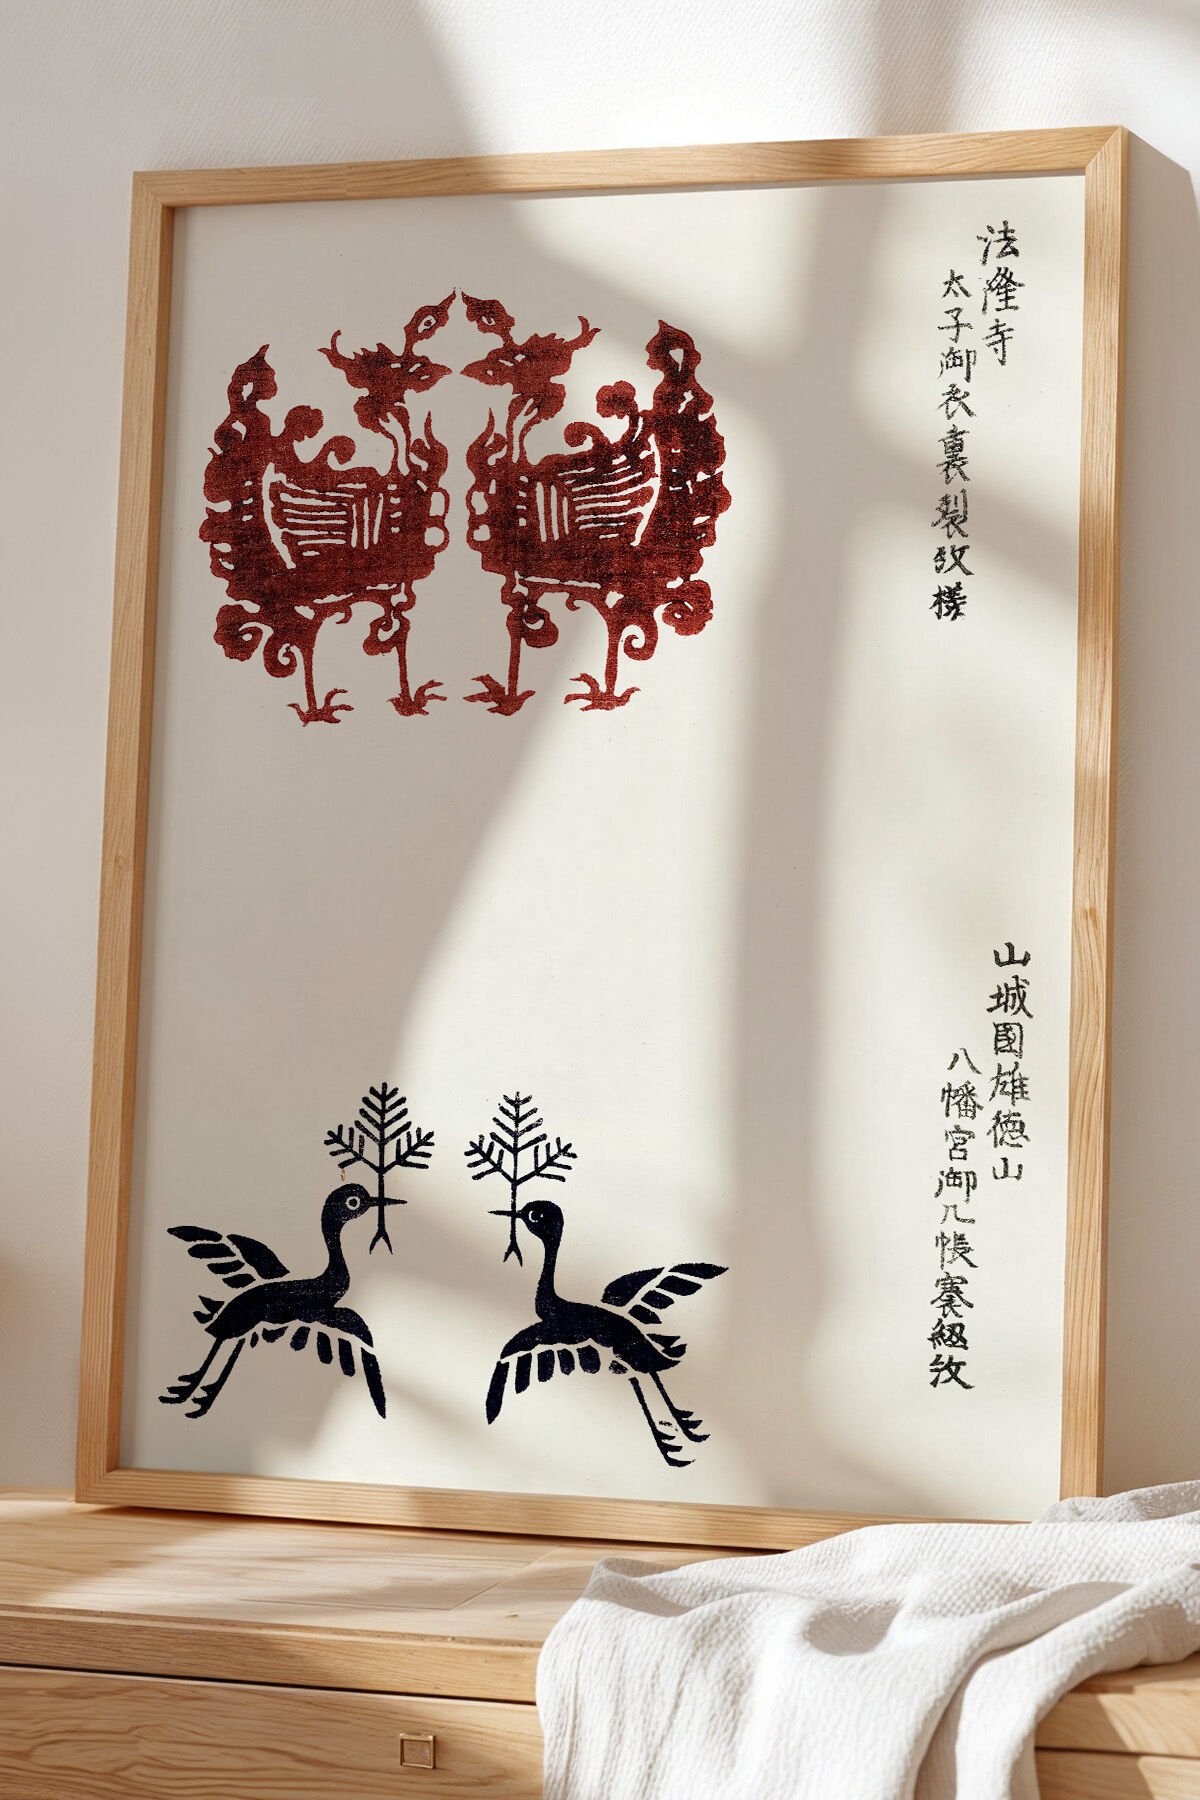 法隆寺
太子御衣裏裂紋様
山城国雄徳山
八幡宮御几帳褰紐紋